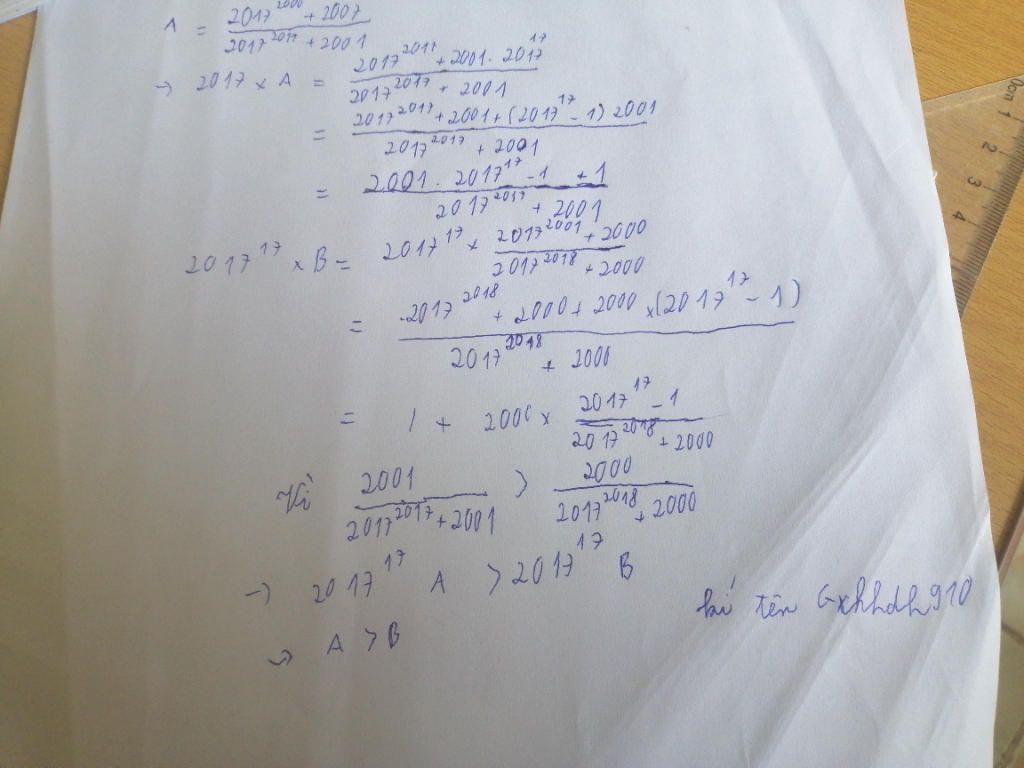 A = (2017^2000 + 2007)/(2017^2017 + 2001)
→ 2017 × A = (2017^2017 + 2001 . 2017^17)/(2017^2017 + 2001)
= (2017^2017 + 2001 + (2017^17 - 1) 2001)/(2017^2017 + 2001)
= (2001 . 2017^17 - 1 + 1)/(2017^2017 + 2001)
2017^17 × B = 2017^17 × (2017^2001 + 2000)/(2017^2018 + 2000)
= (2017^2018 + 2000 + 2000 × (2017^17 - 1))/(2017^2018 + 2000)
= 1 + 2000 × (2017^17 - 1)/(2017^2018 + 2000)
Vì 2001/(2017^2017 + 2001) > 2000/(2017^2018 + 2000)
→ 2017^17 A > 2017^17 B
→ A > B
kí tên Gxhhdh910
1
2
3
4